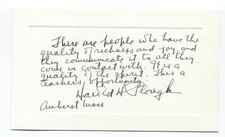 There are people who have the
quality of richness and joy, and
they communicate it to all they
come in contact with. It is a
quality of the spirit. This a
teacher's opportunity.
Harold H Plough
Amherst Mass